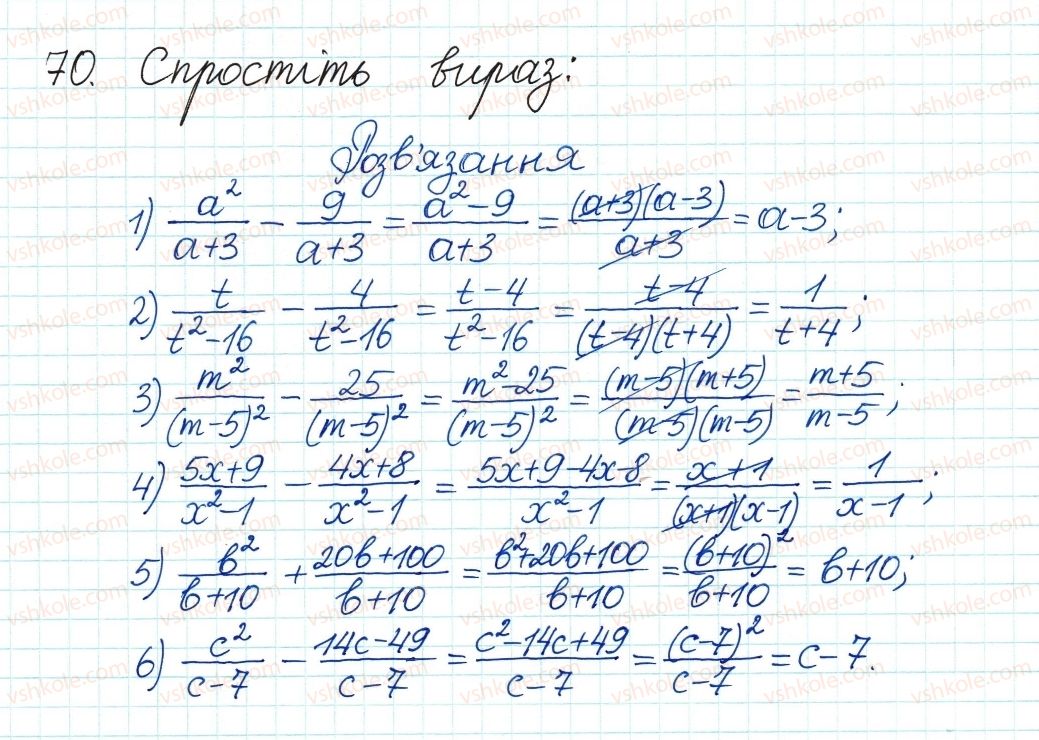 70. Спростіть вираз:
Розв'язання
1) a²/(a+3) − 9/(a+3) = (a²−9)/(a+3) = (a+3)(a−3)/(a+3) = a−3;
2) t/(t²−16) − 4/(t²−16) = (t−4)/(t²−16) = (t−4)/((t−4)(t+4)) = 1/(t+4);
3) m²/(m−5)² − 25/(m−5)² = (m²−25)/(m−5)² = (m−5)(m+5)/((m−5)(m−5)) = (m+5)/(m−5);
4) (5x+9)/(x²−1) − (4x+8)/(x²−1) = (5x+9−4x−8)/(x²−1) = (x+1)/((x+1)(x−1)) = 1/(x−1);
5) в²/(в+10) + (20в+100)/(в+10) = (в²+20в+100)/(в+10) = (в+10)²/(в+10) = в+10;
6) c²/(c−7) − (14c−49)/(c−7) = (c²−14c+49)/(c−7) = (c−7)²/(c−7) = c−7.